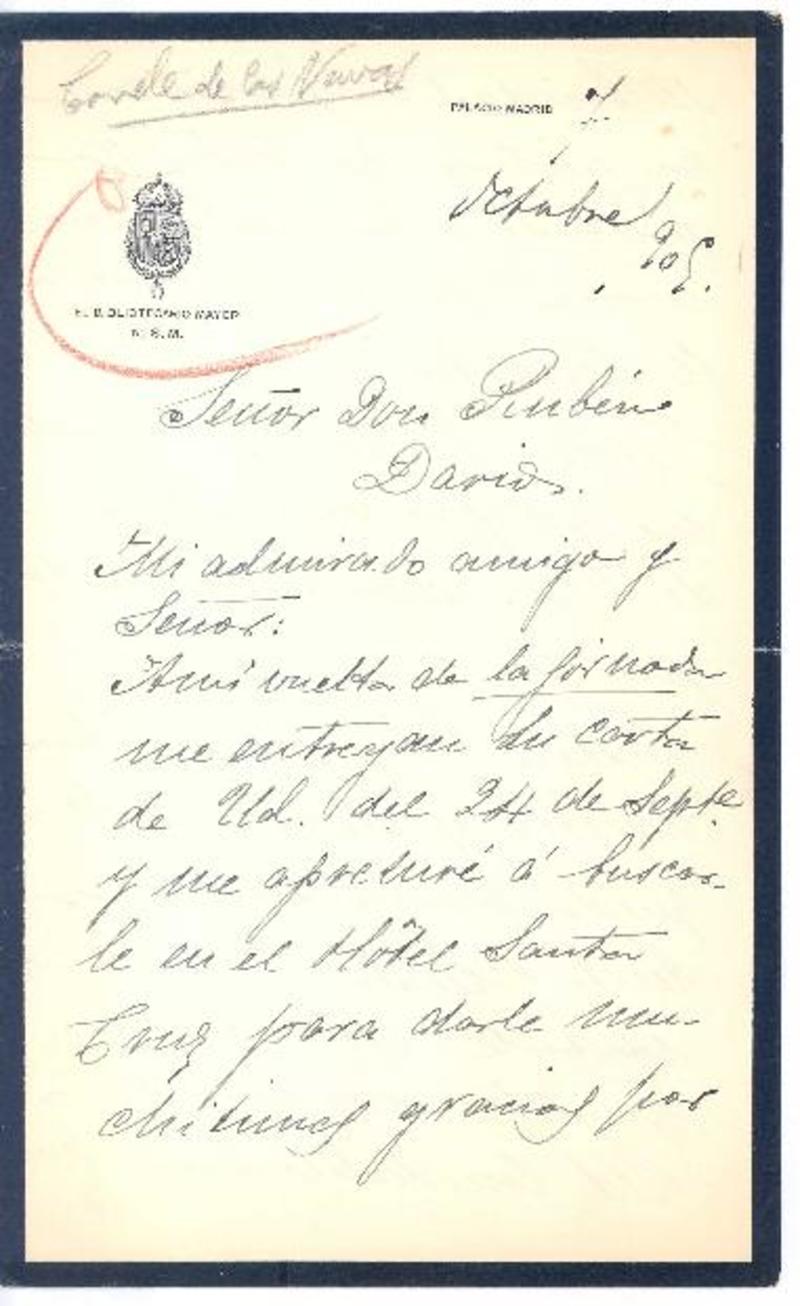 Conde de las Navas
PALACIO MADRID 7
Octubre
905.
EL BIBLIOTECARIO MAYOR
DE S. M.
Señor Don Rubén
Darío.
Mi admirado amigo y
Señor:
A mi vuelta de la jornada
me entregan su carta
de Ud. del 24 de Septe
y me apresuré á buscar-
le en el Hôtel Santa
Cruz para darle mu-
chísimas gracias por